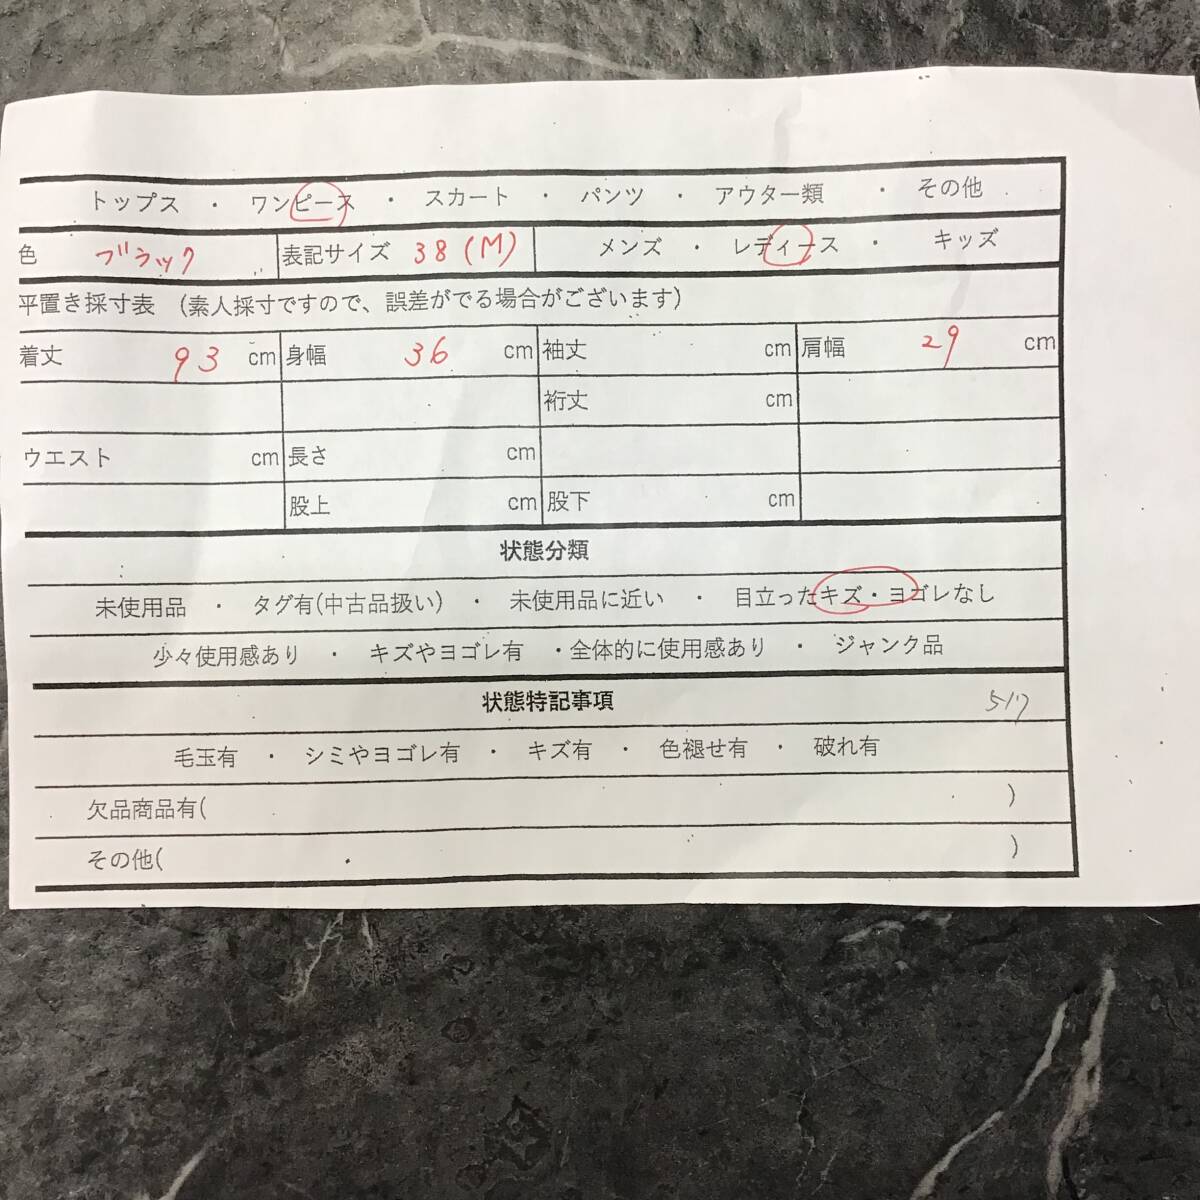 トップス ・ ワンピース ・ スカート ・ パンツ ・ アウター類 ・ その他
色 ブラック 表記サイズ 38(M) メンズ ・ レディース ・ キッズ
平置き採寸表 (素人採寸ですので、誤差がでる場合がございます)
着丈 93 cm 身幅 36 cm 袖丈 cm 肩幅 29 cm
裄丈 cm
ウエスト cm 長さ cm
股上 cm 股下 cm
状態分類
未使用品 ・ タグ有(中古品扱い) ・ 未使用品に近い ・ 目立ったキズ・ヨゴレなし
少々使用感あり ・ キズやヨゴレ有 ・全体的に使用感あり ・ ジャンク品
状態特記事項
毛玉有 ・ シミやヨゴレ有 ・ キズ有 ・ 色褪せ有 ・ 破れ有
欠品商品有( )
その他( )